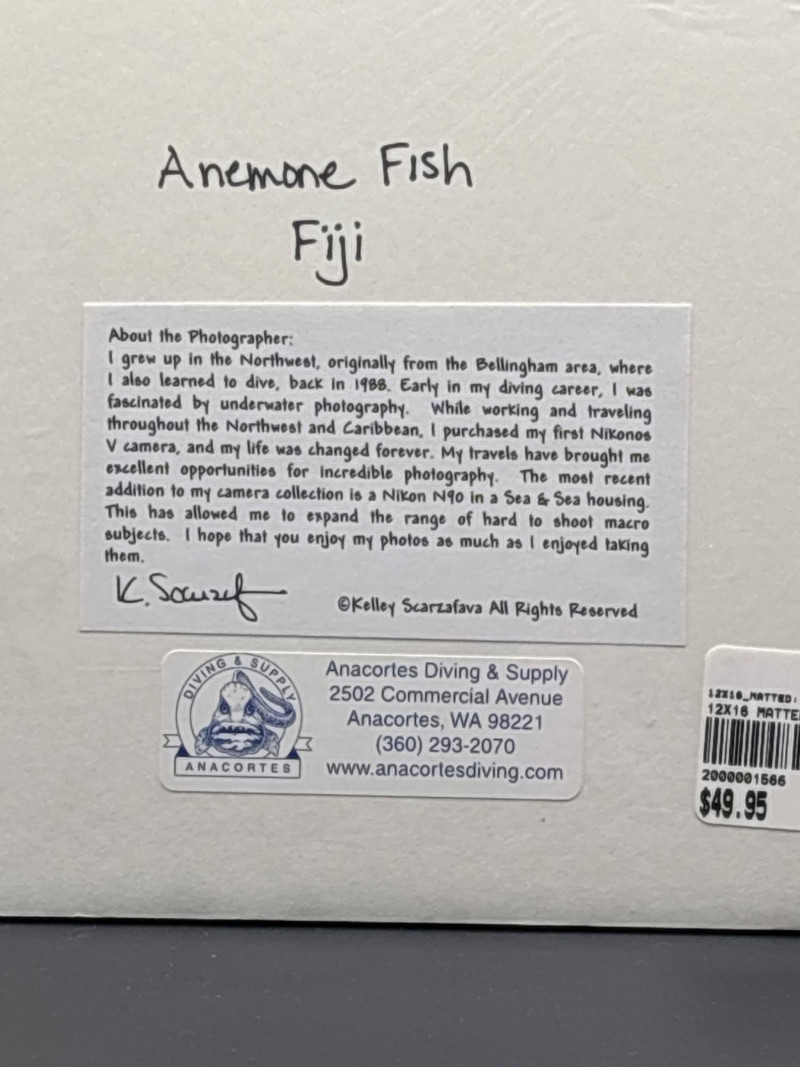 Anemone Fish
Fiji
About the Photographer:
I grew up in the Northwest, originally from the Bellingham area, where
I also learned to dive, back in 1988. Early in my diving career, I was
fascinated by underwater photography. While working and traveling
throughout the Northwest and Caribbean, I purchased my first Nikonos
V camera, and my life was changed forever. My travels have brought me
excellent opportunities for incredible photography. The most recent
addition to my camera collection is a Nikon N90 in a Sea & Sea housing.
This has allowed me to expand the range of hard to shoot macro
subjects. I hope that you enjoy my photos as much as I enjoyed taking
them.
K. Scarzaf
©Kelley Scarzafava All Rights Reserved
DIVING & SUPPLY
ANACORTES
Anacortes Diving & Supply
2502 Commercial Avenue
Anacortes, WA 98221
(360) 293-2070
www.anacortesdiving.com
12X16_MATTED:
12X16 MATTE
2000001566
$49.95